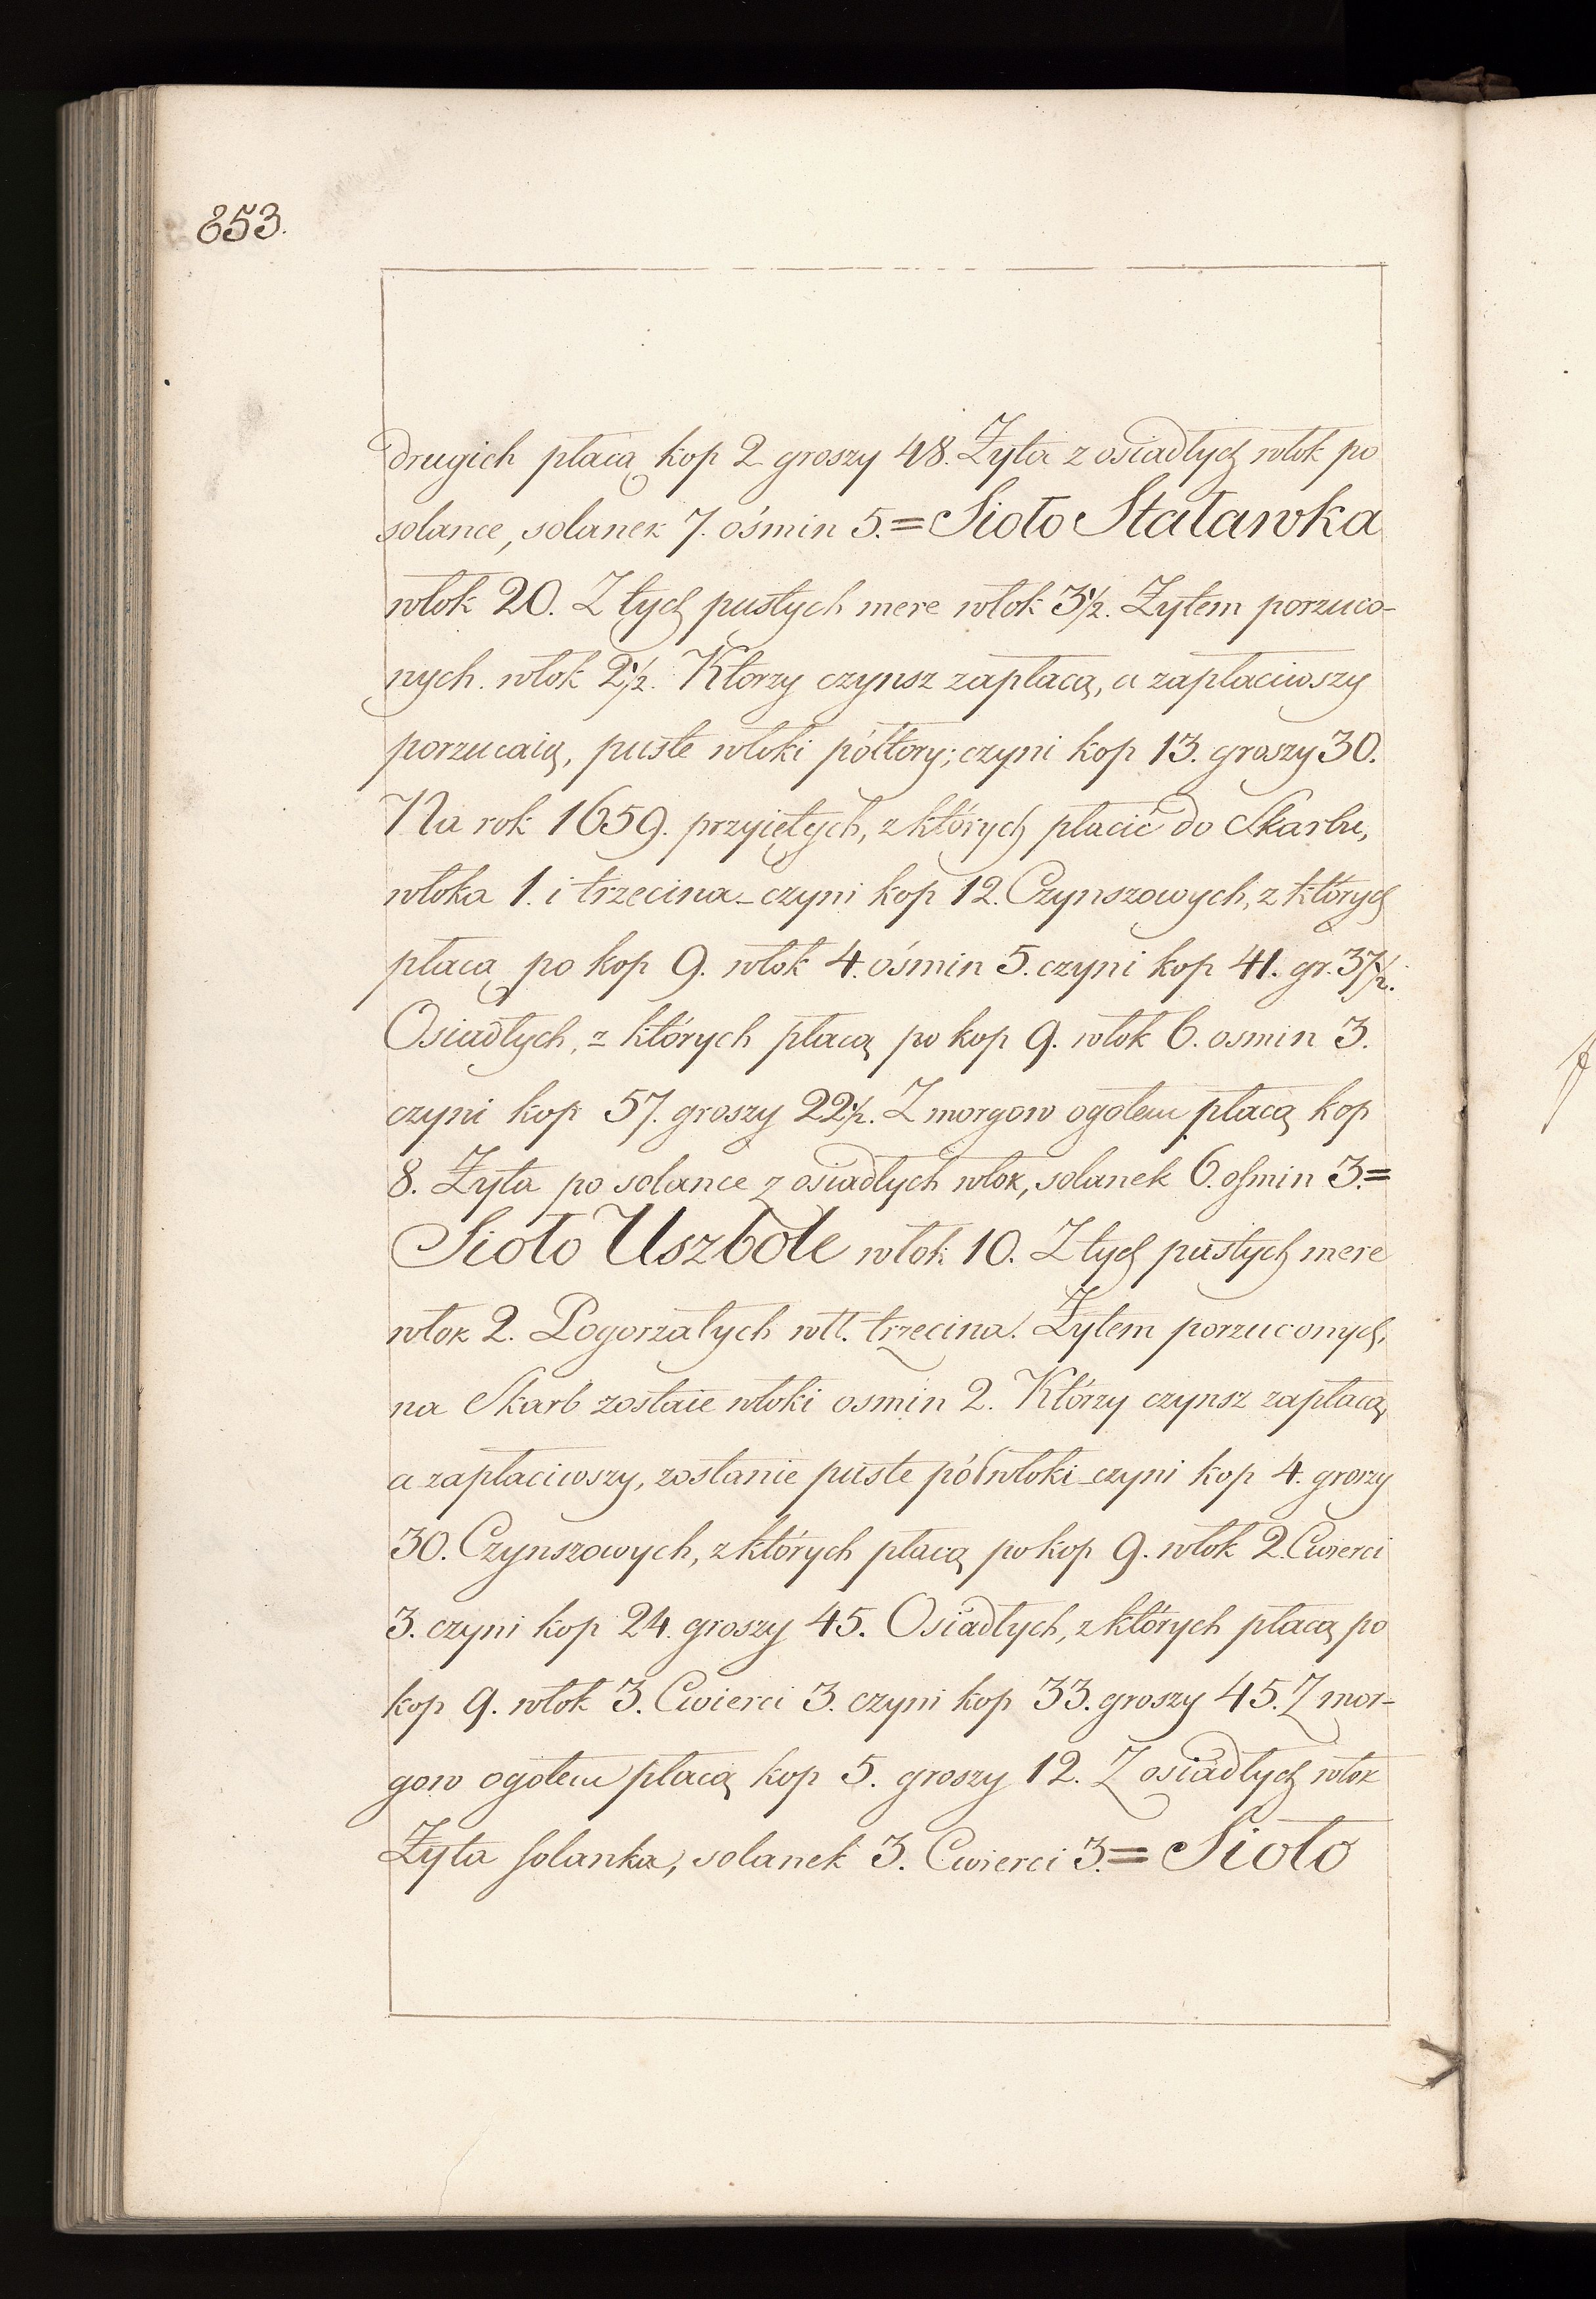 853.
drugich płacą kop 2 groszy 48. Żyta z osiadłych włok po
solance, solanek 7. ośmin 5.= Sioło Staławka
włok 20. Z tych pustych mere włok 3½. Żytem porzuco-
nych. włok 2½. Ktorzy czynsz zapłacą, a zapłaciwszy
porzucaią, puste włoki półtory; czyni kop 13. groszy 30.
Na rok 1659. przyiętych, z których płacić do Skarbu,
włoka 1. i trzecina - czyni kop 12. Czynszowych, z których
płacą po kop 9. włok 4. ośmin 5. czyni kop 41. gr. 37½.
Osiadłych, z których płacą po kop 9. włok 6. osmin 3.
czyni kop 57. groszy 22½. Z morgow ogołem płacą kop
8. Żyta po solance z osiadłych włok, solanek 6. osmin 3.=
Sioło Uszbole włok 10. Z tych pustych mere
włok 2. Pogorzałych włł. trzecina. Żytem porzuconych,
na Skarb zostaie włoki osmin 2. Którzy czynsz zapłacą,
a zapłaciwszy, zostanie puste pół włoki - czyni kop 4. groszy
30. Czynszowych, z których płacą po kop 9. włok 2. Cwierci
3. czyni kop 24. groszy 45. Osiadłych, z których płacą po
kop 9. włok 3. Cwierci 3. czyni kop 33. groszy 45. Z mor-
gow ogołem płacą kop 5. groszy 12. Z osiadłych włok
Żyta solanka, solanek 3. Cwierci 3.= Sioło